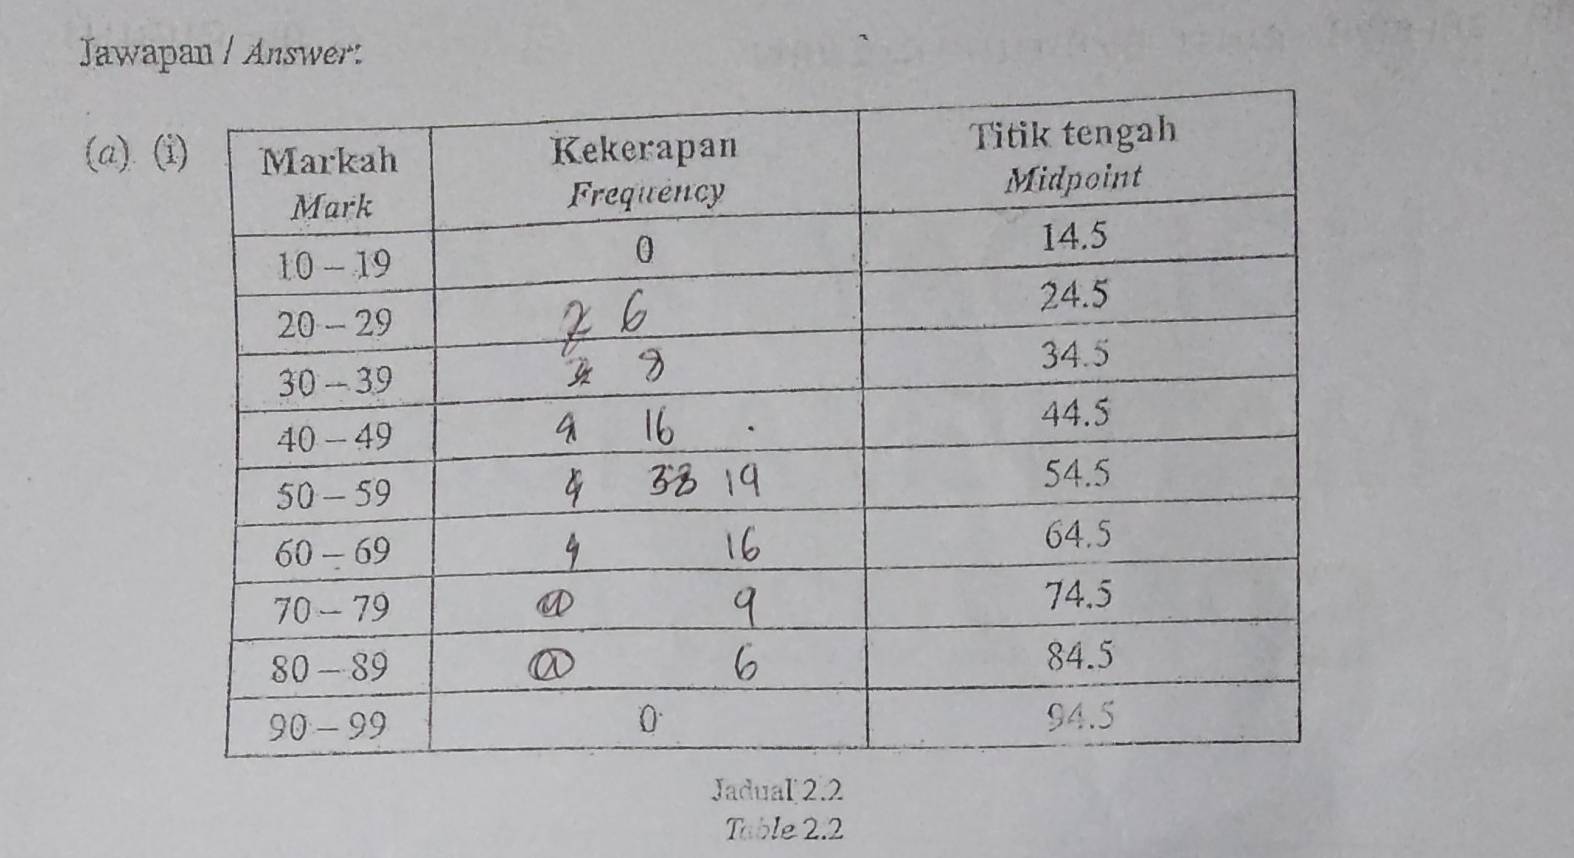 Jawapan / Answer:
(a) (i)
Markah Kekerapan Titik tengah
Mark Frequency Midpoint
10 – 19 0 14.5
20 – 29 6 24.5
30 – 39 8 34.5
40 – 49 16 44.5
50 – 59 38 19 54.5
60 – 69 16 64.5
70 – 79 9 74.5
80 – 89 6 84.5
90 – 99 0 94.5
Jadual 2.2
Table 2.2